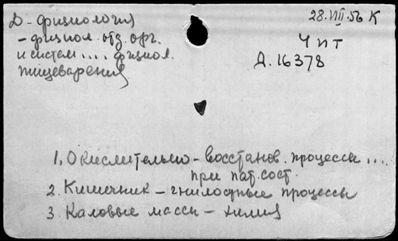 Д - физиология
28.VIII.56 К
- физиол. отд. орг.
Чит
и систем ... физиол.
Д. 16378
пищеварения
1. Окислительно - восстанов. процессы ...
при пат. сост.
2. Кишечник - гнилостные процессы
3. Каловые массы - химия